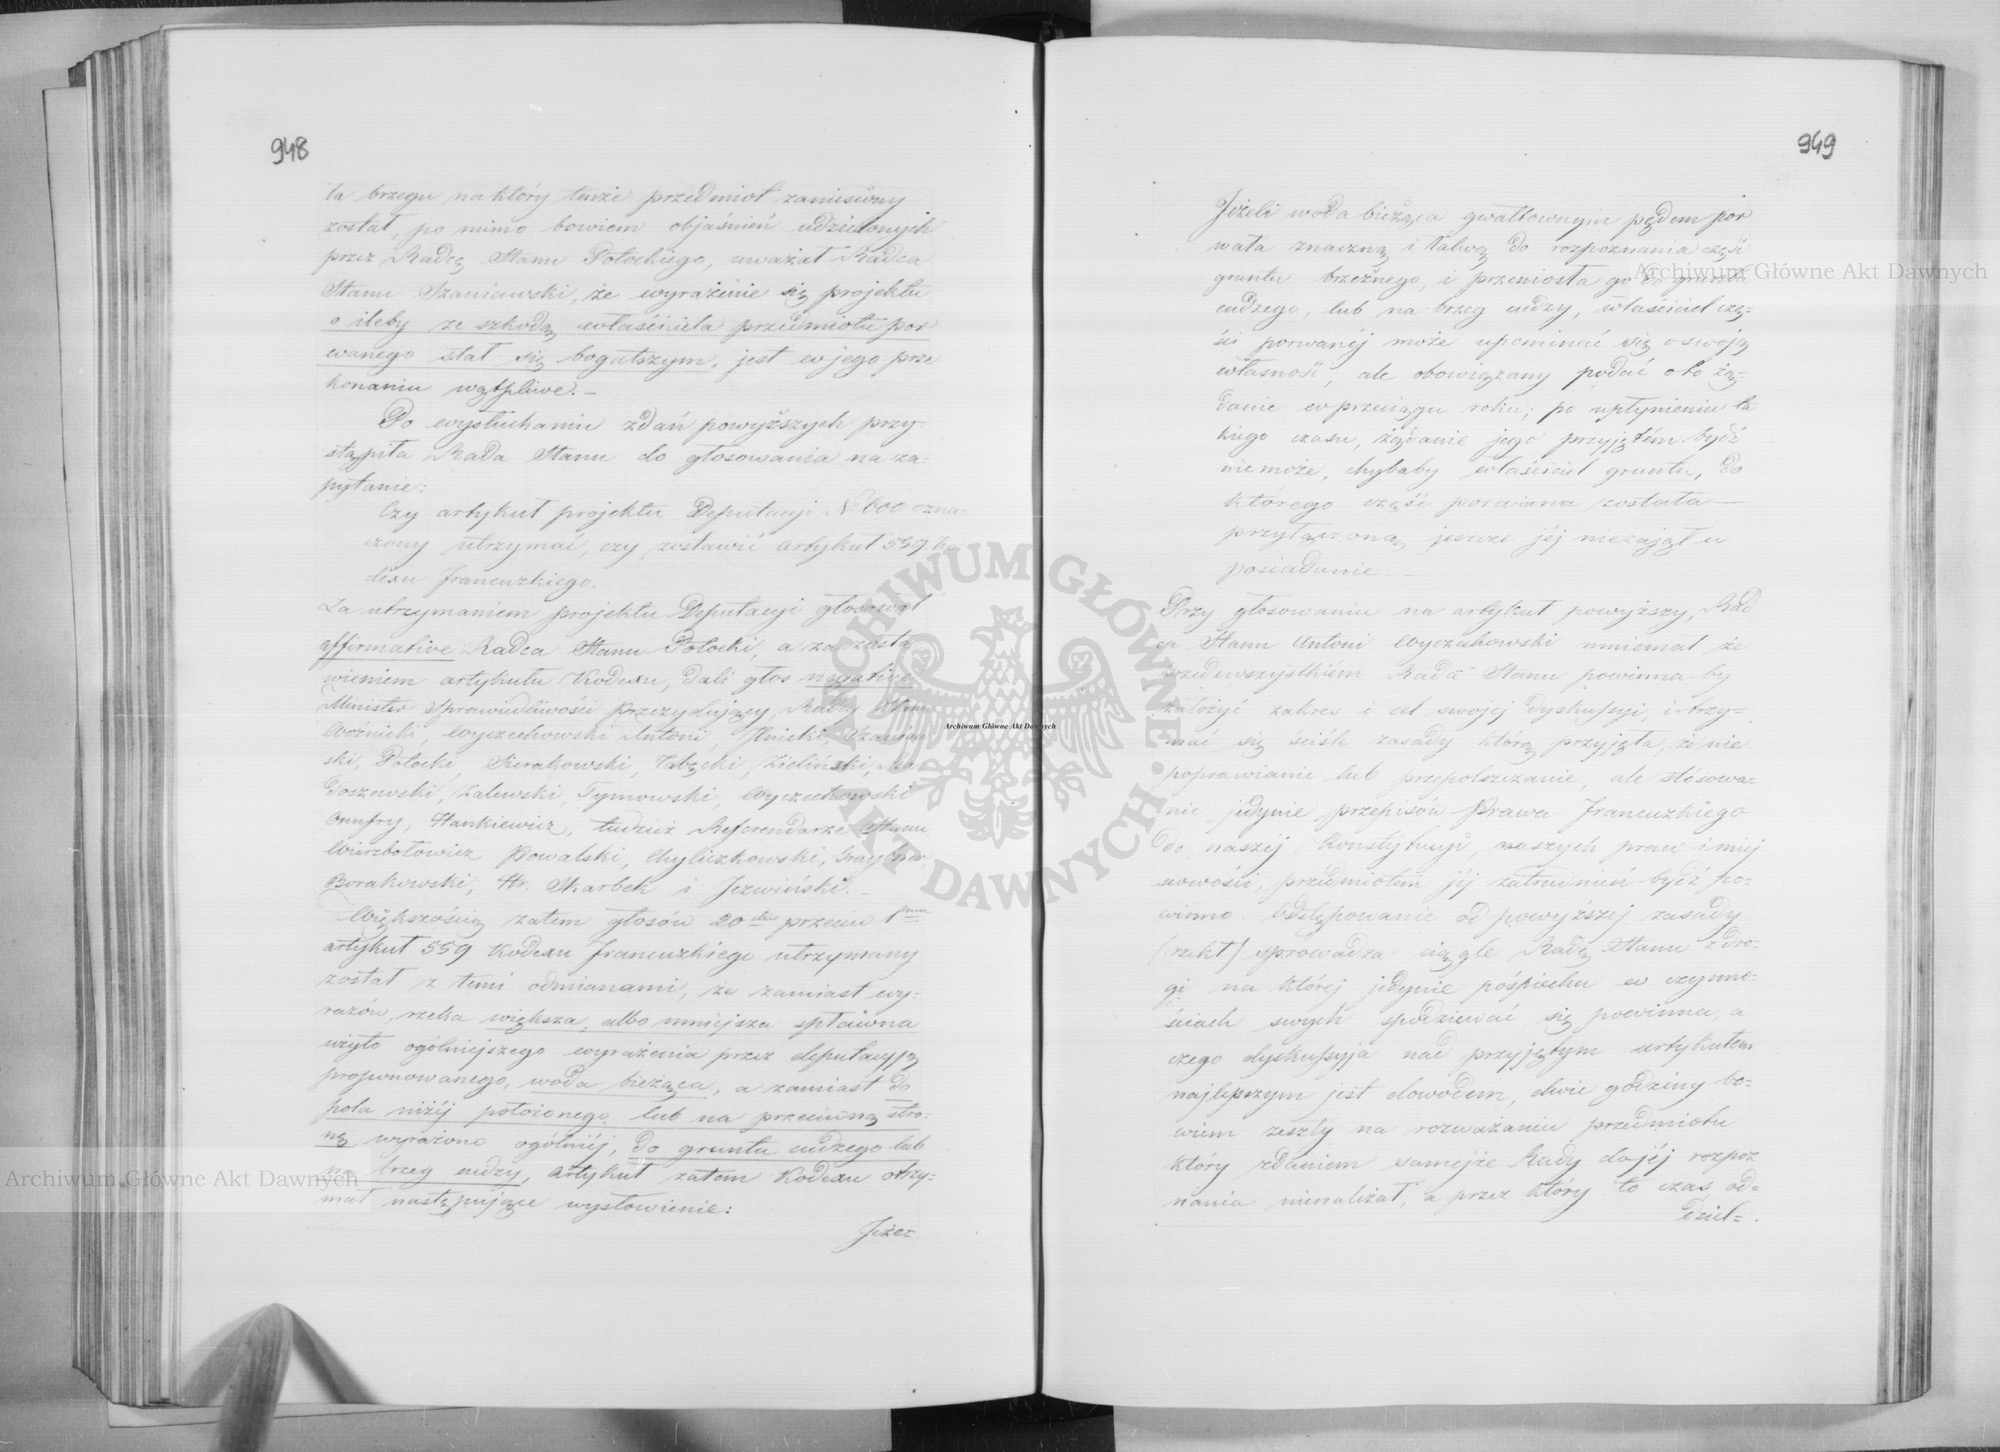 948
la brzegu na który tenże przedmiot zaniesiony
został, po mimo bowiem objaśnień udzielonych
przez Radcę Stanu Potockiego, uważał Radca
Stanu Szaniawski, że wyrażenie się projektu
o ileby ze szkodą właściciela przedmiotu por
wanego stał się bogatszym, jest w jego prze
konaniu wątpliwe. –
Po wysłuchaniu zdań powyższych przy-
stąpiła Rada Stanu do głosowania na za-
pytanie:
Czy artykuł projektu Deputacyi No 600 ozna-
czony utrzymać, czy zostawić artykuł 559. Ko
dexu francuzkiego.
Za utrzymaniem projektu Deputacyi głosował
affirmative Radca Stanu Potocki, a za zosta
wieniem artykułu Kodexu, dali głos negative
Minister Sprawiedliwości prezydujący, Radcy Stanu
Woźnicki, Wyczechowski Antoni,
ski, Potocki, Sierakowski, Zieliński,
doszewski, Zalewski, Tymowski, Wyczechowski
Onufry, Hankiewicz, tudzież Referendarze Stanu
Wierzbołowicz Kowalski, Chyliczkowski,
Borakowski, Hr. Skarbek i Jezwiński. –
Większością zatem głosów 20stu przeciw 1mu
artykuł 559 Kodexu francuzkiego utrzymany
został z temi odmianami, że zamiast wy-
razów, rzeka większa, albo mniejsza spławna
użyto ogólniejszego wyrażenia przez deputacyją
proponowanego, woda bieżąca, a zamiast do
pola niżéj położonego lub na przeciwną stro-
nę wyrażono ogólniéj, do gruntu cudzego lub
na brzeg cudzy, artykuł zatem Kodexu otrzy-
mał następujące wysłowienie:
Jeże-
949
Jeżeli woda bieżąca gwałtownym pędem por
wała znaczną i łatwą do rozpoznania część
gruntu brzeżnego, i przeniosła go do gruntu
cudzego, lub na brzeg cudzy, właściciel czę-
ści porwanéj może upominać się o swoją
własność, ale obowiązany podać o to żą-
danie w przeciągu roku; po upłynieniu ta
kiego czasu, żądanie jego przyjętém bydź
nie może, chybaby właściciel gruntu, do
którego część porwana została
przyłączoną, jeszcze jéj niezajął w
posiadanie. –
Przy głosowaniu na artykuł powyższy, Rad
ca Stanu Antoni Wyczechowski mniemał że
przedewszystkiém Rada Stanu powinna by
założyć zakres i cel swojej dyskussyi, i trzy-
mać się ściśle zasady którą przyjęła, że nie
poprawianie lub przepolszczanie, ale stósowa-
nie jedynie przepisów Prawa francuzkiego
do naszéj Konstytucyi, naszych praw i miej
scowości, przedmiotem jéj zatrudnień bydź po-
winno. Odstępowanie od powyższej zasady
(rzekł) sprowadza ciągle Radę Stanu z dro-
gi na któréj jedynie pośpiechu w czynno-
ściach swych spodziewać się powinna, a
czego dyskussyja nad przyjętym artykułem
najlepszym jest dowodem, dwie godziny bo-
wiem zeszły na rozważaniu przedmiotu
który zdaniem samejże Rady dojéj rozpoz
nania nienależał, a przez który to czas od-
dziel-
Archiwum Główne Akt Dawnych
Archiwum Główne Akt Dawnych
Archiwum Główne Akt Dawnych
ARCHIWUM GŁÓWNE AKT DAWNYCH